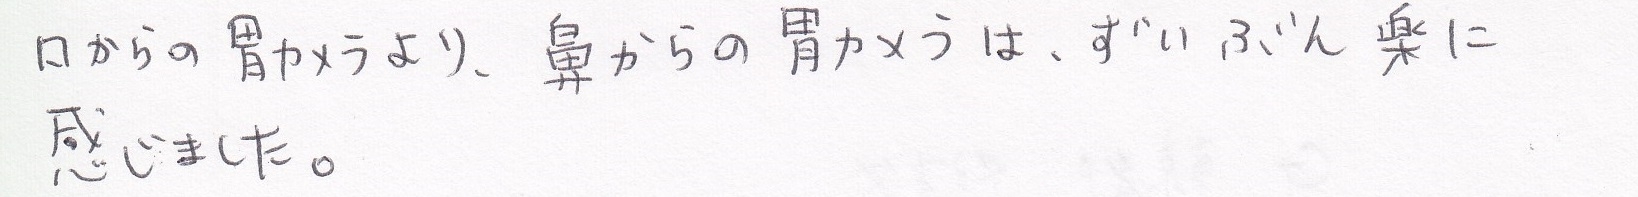 口からの胃カメラより、鼻からの胃カメラは、ずいぶん楽に
感じました。